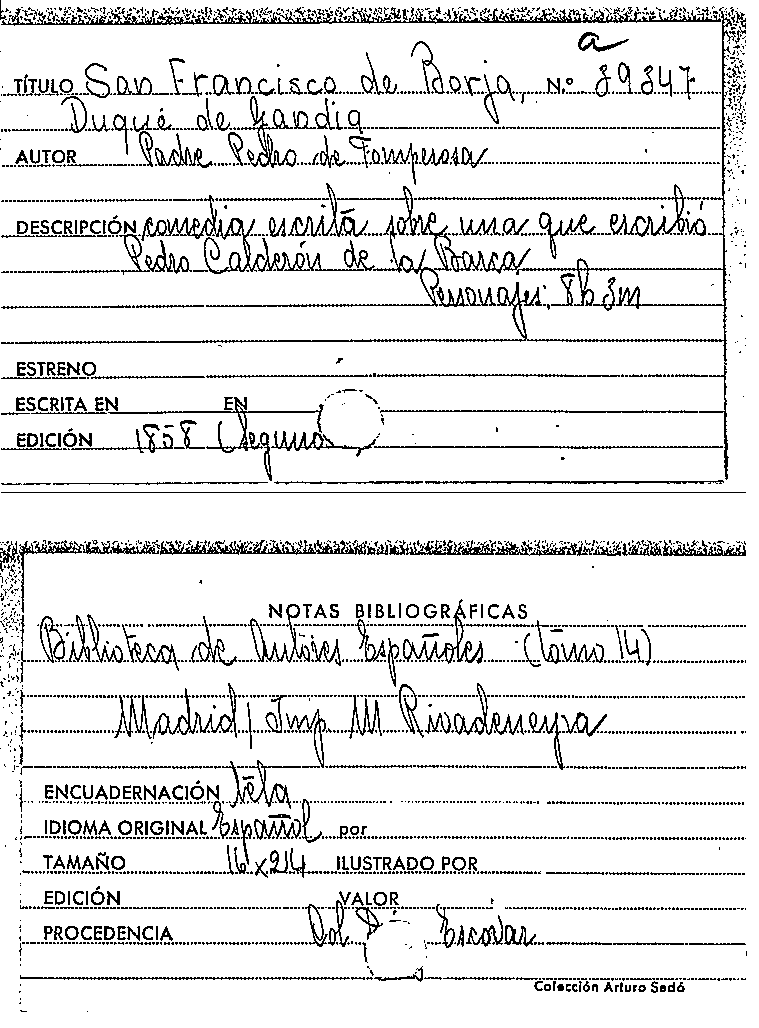 a
TÍTULO San Francisco de Borja, N.º 39347
Duque de Gandia
AUTOR Padre Pedro de Fomperosa
DESCRIPCIÓN comedia escrita sobre una que escribió
Pedro Calderón de la Barca
Personajes: 8h 3m
ESTRENO
ESCRITA EN EN
EDICIÓN 1858 (Segund
NOTAS BIBLIOGRÁFICAS
Biblioteca de Autores Españoles (tomo 14)
Madrid / Imp M Rivadeneyra
ENCUADERNACIÓN tela
IDIOMA ORIGINAL Español por
TAMAÑO 16 x 24 ILUSTRADO POR
EDICIÓN VALOR
PROCEDENCIA Col Escovar
Colección Arturo Sedó